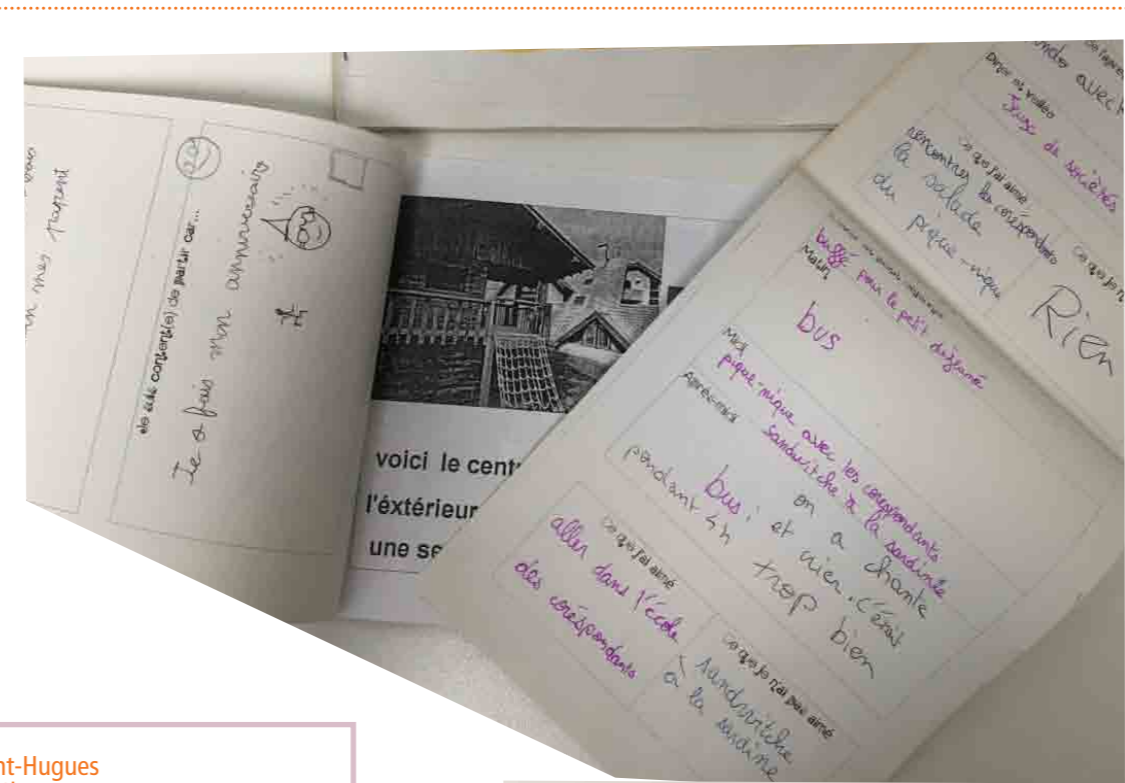 mes
tapent
Je suis content(e) de partir car...
Je fais mon anniversaire
voici le cent
l'éxtérieur
une se
avec
Dîner et veillée
Jeux de sociétés
Ce que j'ai aimé
rencontrer les coréspondants
la salade
du pique-nique
Ce que je n'
Rien
Matin
buffé pour le petit
bus
Midi
pique-nique avec les
sandwitche à la
Après-midi
on a chanté
bus, et rien. c'était
pendant 4h trop bien
Ce que j'ai aimé
aller dans l'école
des coréspondants
Ce que je n'ai pas aimé
sandwitche
à la sardine
nt-Hugues